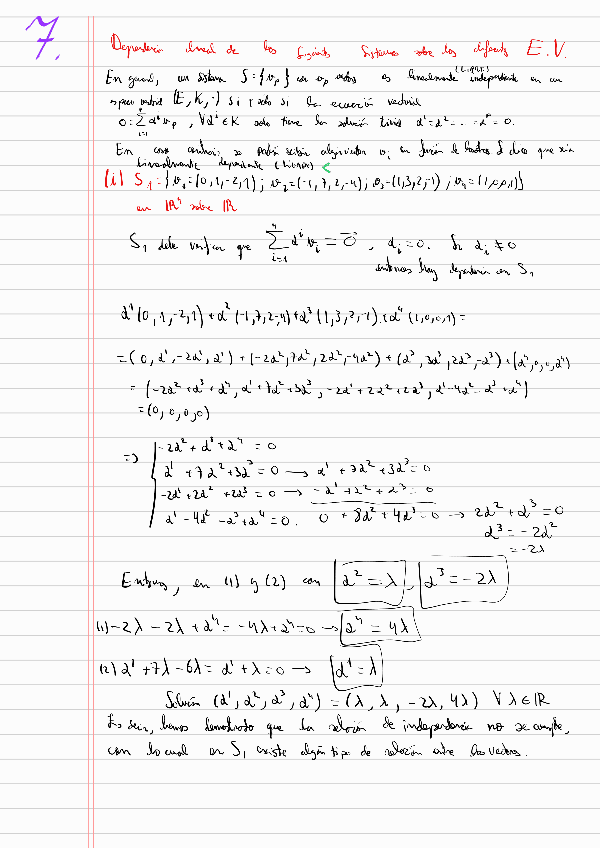 7. Dependencia lineal de los siguientes sistemas sobre los diferentes E.V.
En general, un sistema S={v_p} con v_p vectores es linealmente independiente en un
espacio vectorial (E, K, ·) si y solo si la ecuación vectorial
0 = \sum_{i=1} α^i v_p, ∀α^i ∈ K solo tiene la solución trivial α^1=α^2=...=α^p=0.
En caso contrario, se podrá escribir algún vector v_i en función de los otros y dice que son
linealmente dependientes
(i) S_1={v_1=(0,1,-2,1); v_2=(-1,7,2,-4); v_3=(1,3,2,-1); v_4=(1,0,0,1)}
en ℝ^4 sobre ℝ
S_1 debe verificar que \sum_{i=1}^{4} α^i v_i = \vec{0}, α_i=0. Si α_i ≠ 0
entonces hay dependencia en S_1
α^1(0,1,-2,1)+α^2(-1,7,2,-4)+α^3(1,3,2,-1)+α^4(1,0,0,1)=
=(0,α^1,-2α^1,α^1)+(-2α^2,7α^2,2α^2,-4α^2)+(α^3,3α^3,2α^3,-α^3)+(α^4,0,0,α^4)
=(-2α^2+α^3+α^4, α^1+7α^2+3α^3, -2α^1+2α^2+2α^3, α^1-4α^2-α^3+α^4)
=(0,0,0,0)
⇒ { -2α^2+α^3+α^4=0
α^1+7α^2+3α^3=0 → α^1+7α^2+3α^3=0
-2α^1+2α^2+2α^3=0 → -α^1+α^2+α^3=0
α^1-4α^2-α^3+α^4=0. 0+8α^2+4α^3=0 → 2α^2+α^3=0
α^3=-2α^2
=-2λ
Entonces, en (1) y (2) con α^2=λ, α^3=-2λ
(1) -2λ-2λ+α^4=-4λ+α^4=0 → α^4=4λ
(2) α^1+7λ-6λ=α^1+λ=0 → α^1=λ
Solución (α^1,α^2,α^3,α^4)=(λ,λ,-2λ,4λ) ∀λ∈ℝ
Es decir, hemos demostrado que la relación de independencia no se cumple,
con lo cual en S_1 existe algún tipo de relación entre los vectores.